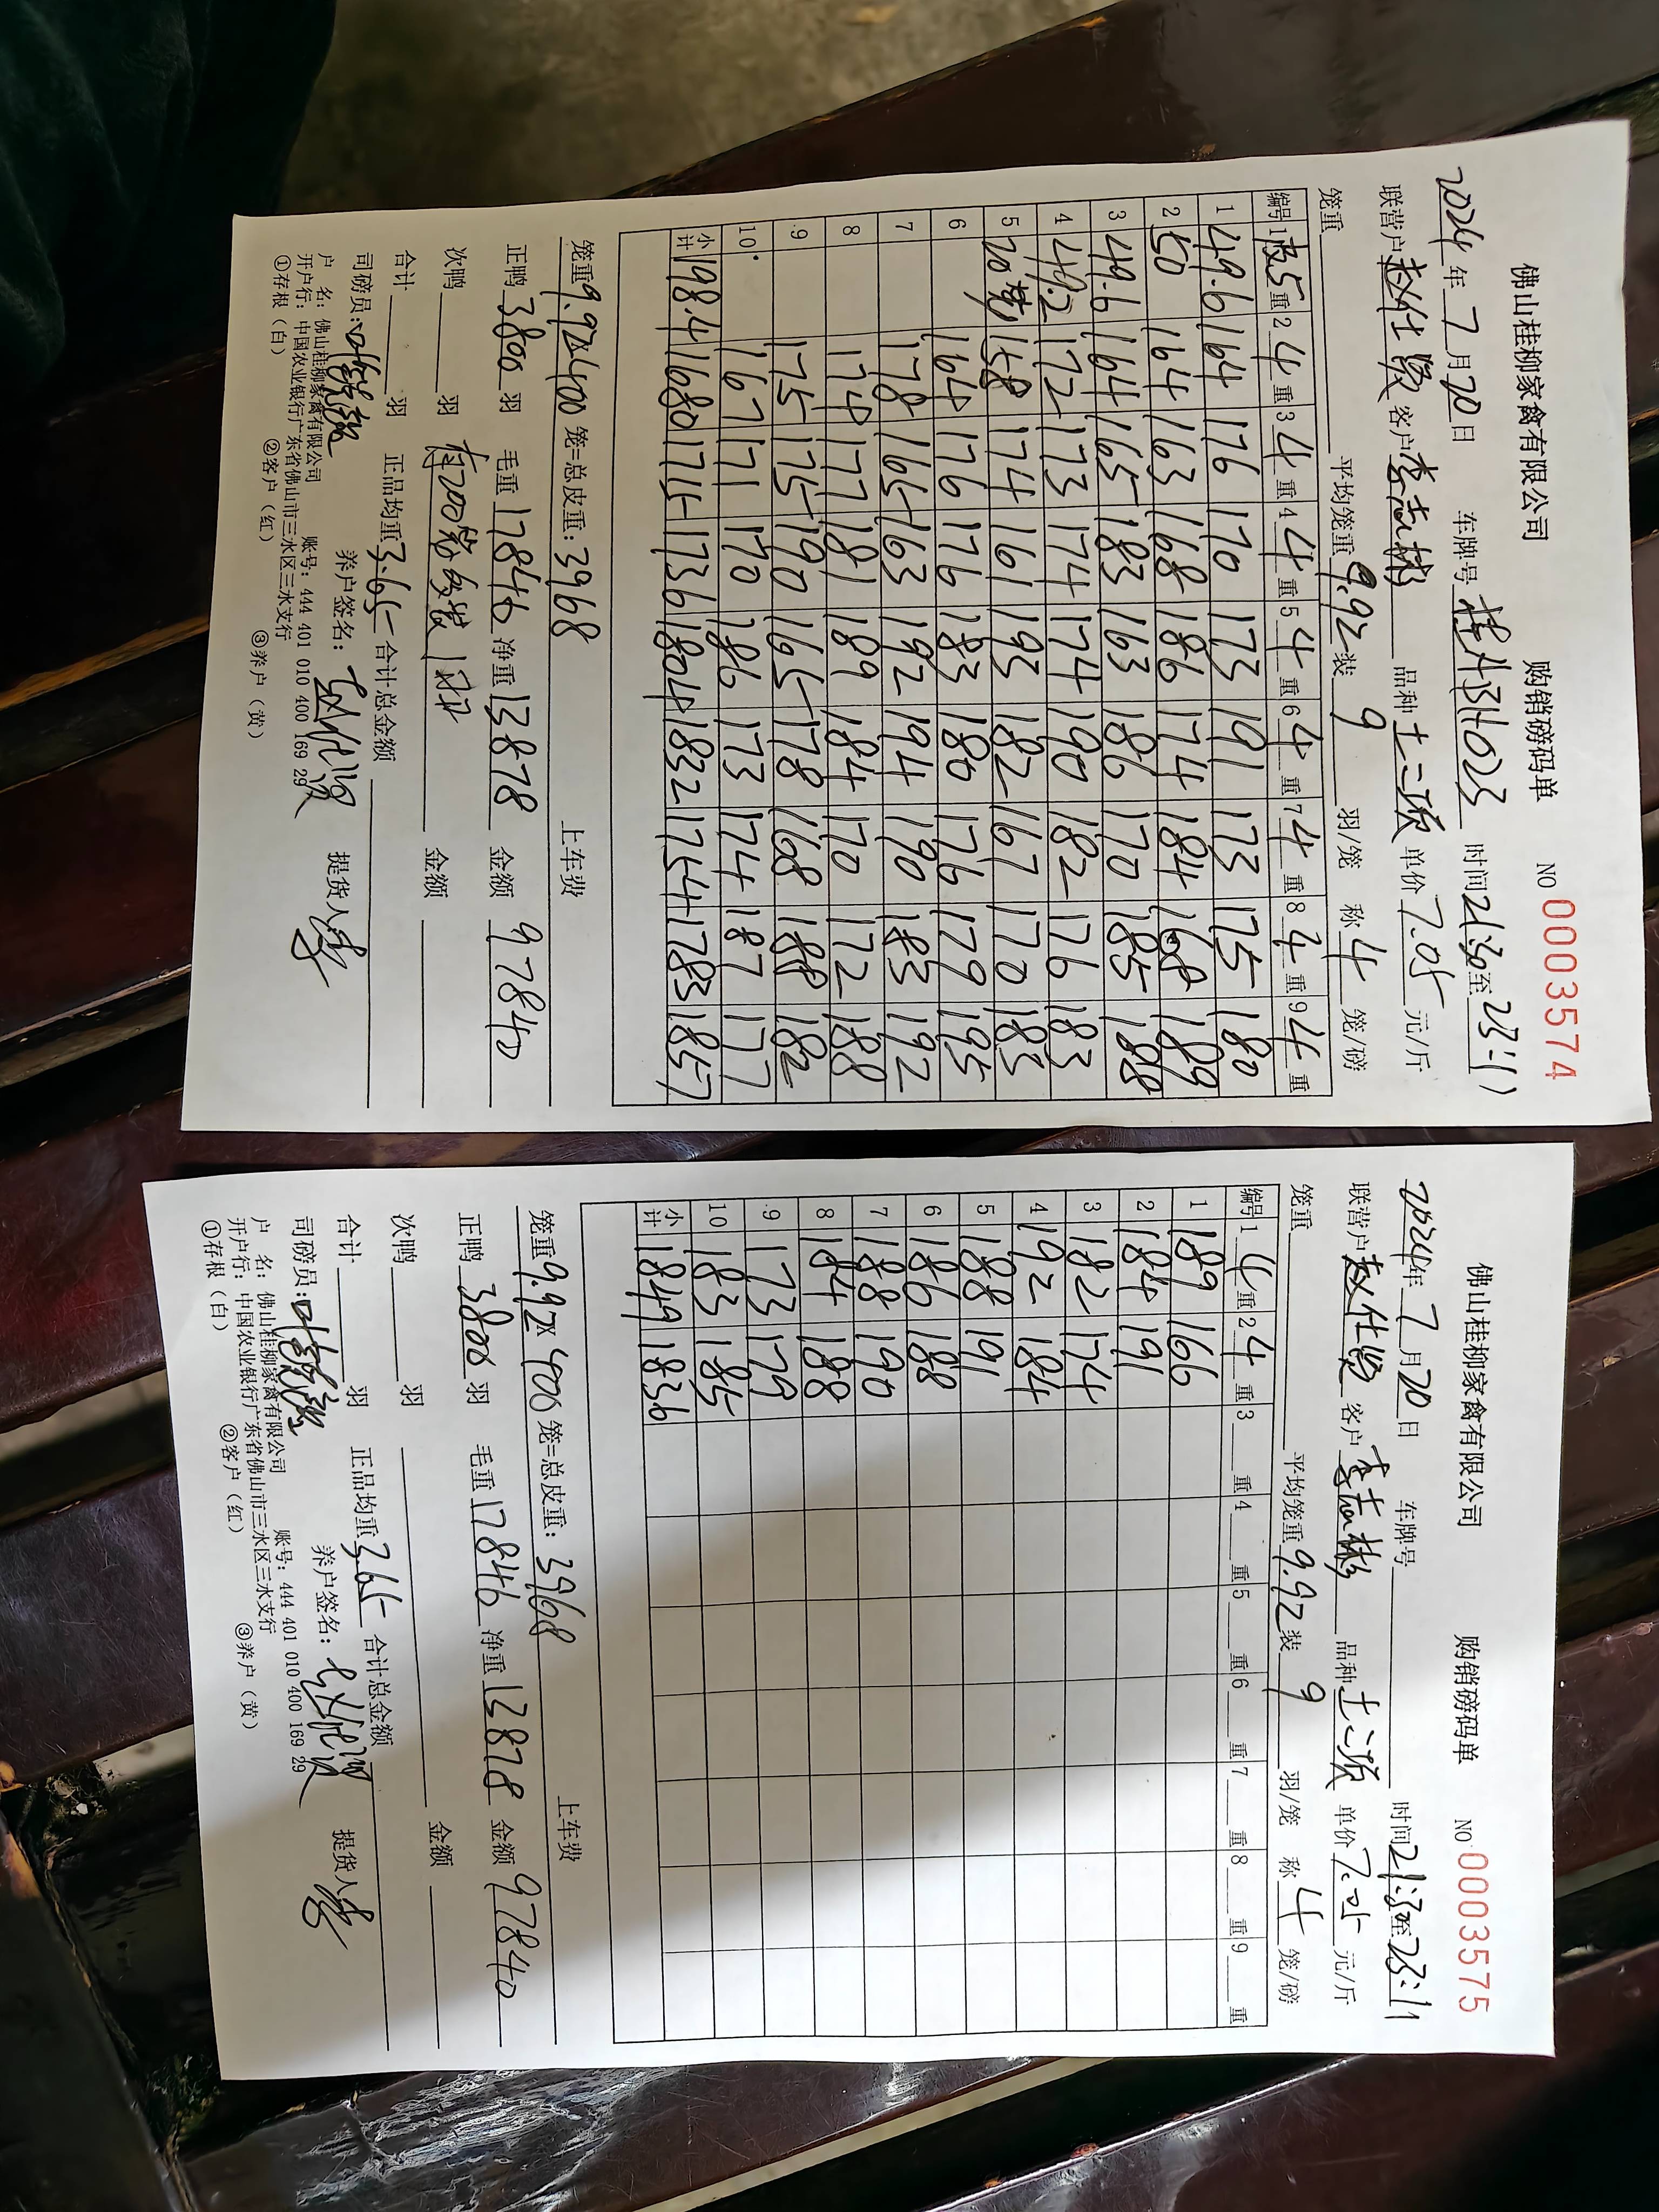 佛山桂柳家禽有限公司 购销磅码单 NO 0003574
2024年7月20日 车牌号 时间21:30至23:11
联营户赵仕贤 客户李志彬 品种土二项 单价7.05元/斤
笼重 平均笼重9.92装9羽/笼 称4笼/磅
编号 1 皮5重 2 4重 3 4重 4 4重 5 4重 6 4重 7 4重 8 4重 9 4重
1 49.6 164 176 170 173 191 173 175 180
2 50 164 163 168 186 174 184 168 189
3 49.6 164 165 183 163 186 170 185 188
4 49.2 172 173 174 174 190 182 176 183
5 20 158 174 161 193 182 167 170 183
6 164 176 176 183 180 176 179 195
7 178 165 163 192 194 190 183 192
8 174 177 181 189 184 170 172 188
9 175 175 190 165 178 168 188 182
10 167 171 170 186 173 174 187 177
小计 198.4 1680 1715 1736 1804 1832 1754 1783 1857
笼重9.92×400笼=总皮重:3968 上车费
正鸭3800羽 毛重17846净重13878金额97840
次鸭 羽 金额
合计 羽 正品均重3.65合计总金额
司磅员: 养户签名: 提货人李
户 名:佛山桂柳家禽有限公司 账号:444 401 010 400 169 29
开户行:中国农业银行广东省佛山市三水区三水支行
①存根(白) ②客户(红) ③养户(黄)
佛山桂柳家禽有限公司 购销磅码单 NO 0003575
2024年7月20日 车牌号 时间21:30至23:11
联营户赵仕贤 客户李志彬 品种土二项 单价7.05元/斤
笼重 平均笼重9.92装9羽/笼 称4笼/磅
编号 1 4重 2 4重 3 重 4 重 5 重 6 重 7 重 8 重 9 重
1 189 166
2 184 191
3 182 174
4 192 184
5 188 191
6 186 188
7 188 190
8 184 188
9 173 179
10 183 185
小计 1849 1836
笼重9.92×400笼=总皮重:3968 上车费
正鸭3800羽 毛重17846净重13878金额97840
次鸭 羽 金额
合计 羽 正品均重3.65合计总金额
司磅员: 养户签名: 提货人李
户 名:佛山桂柳家禽有限公司 账号:444 401 010 400 169 29
开户行:中国农业银行广东省佛山市三水区三水支行
①存根(白) ②客户(红) ③养户(黄)